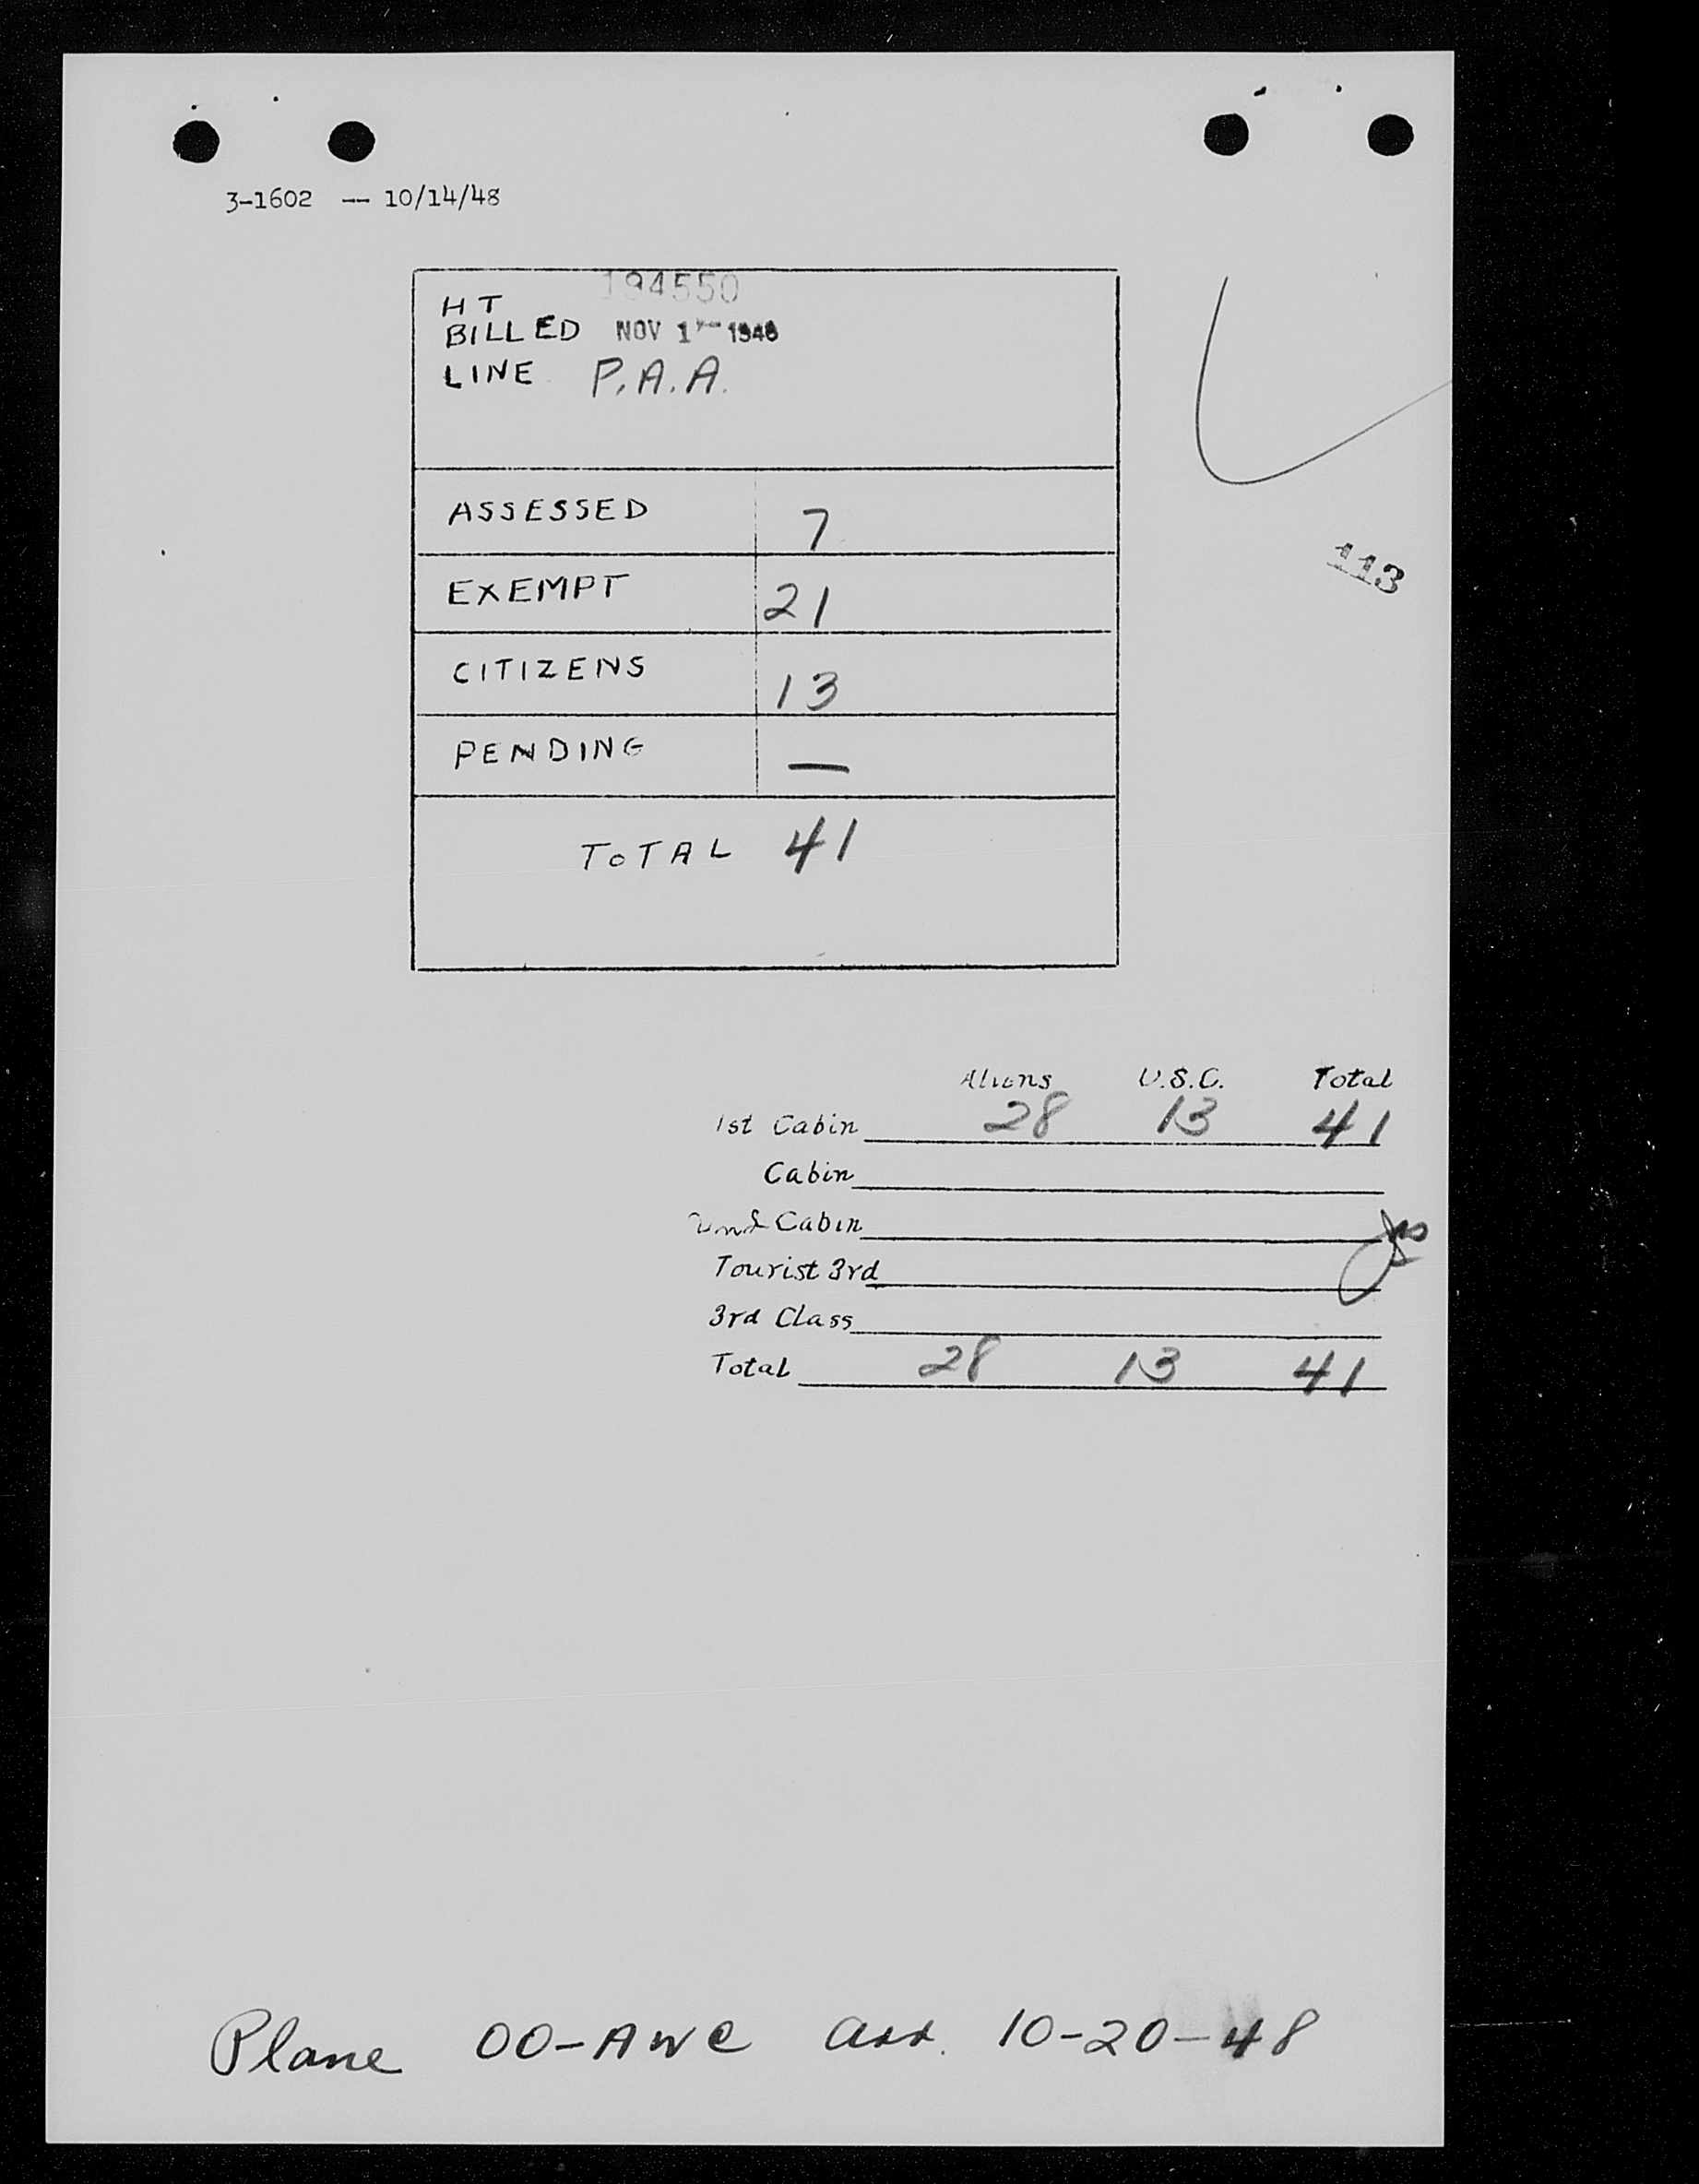 3-1602 -- 10/14/48
194550
HT
BILLED NOV 1 1948
LINE P.A.A.
ASSESSED 7
EXEMPT 21
CITIZENS 13
PENDING —
TOTAL 41
113
Aliens U.S.C. Total
1st Cabin 28 13 41
Cabin
2nd Cabin
Tourist 3rd
3rd Class
Total 28 13 41
Plane OO-AWC arr. 10-20-48